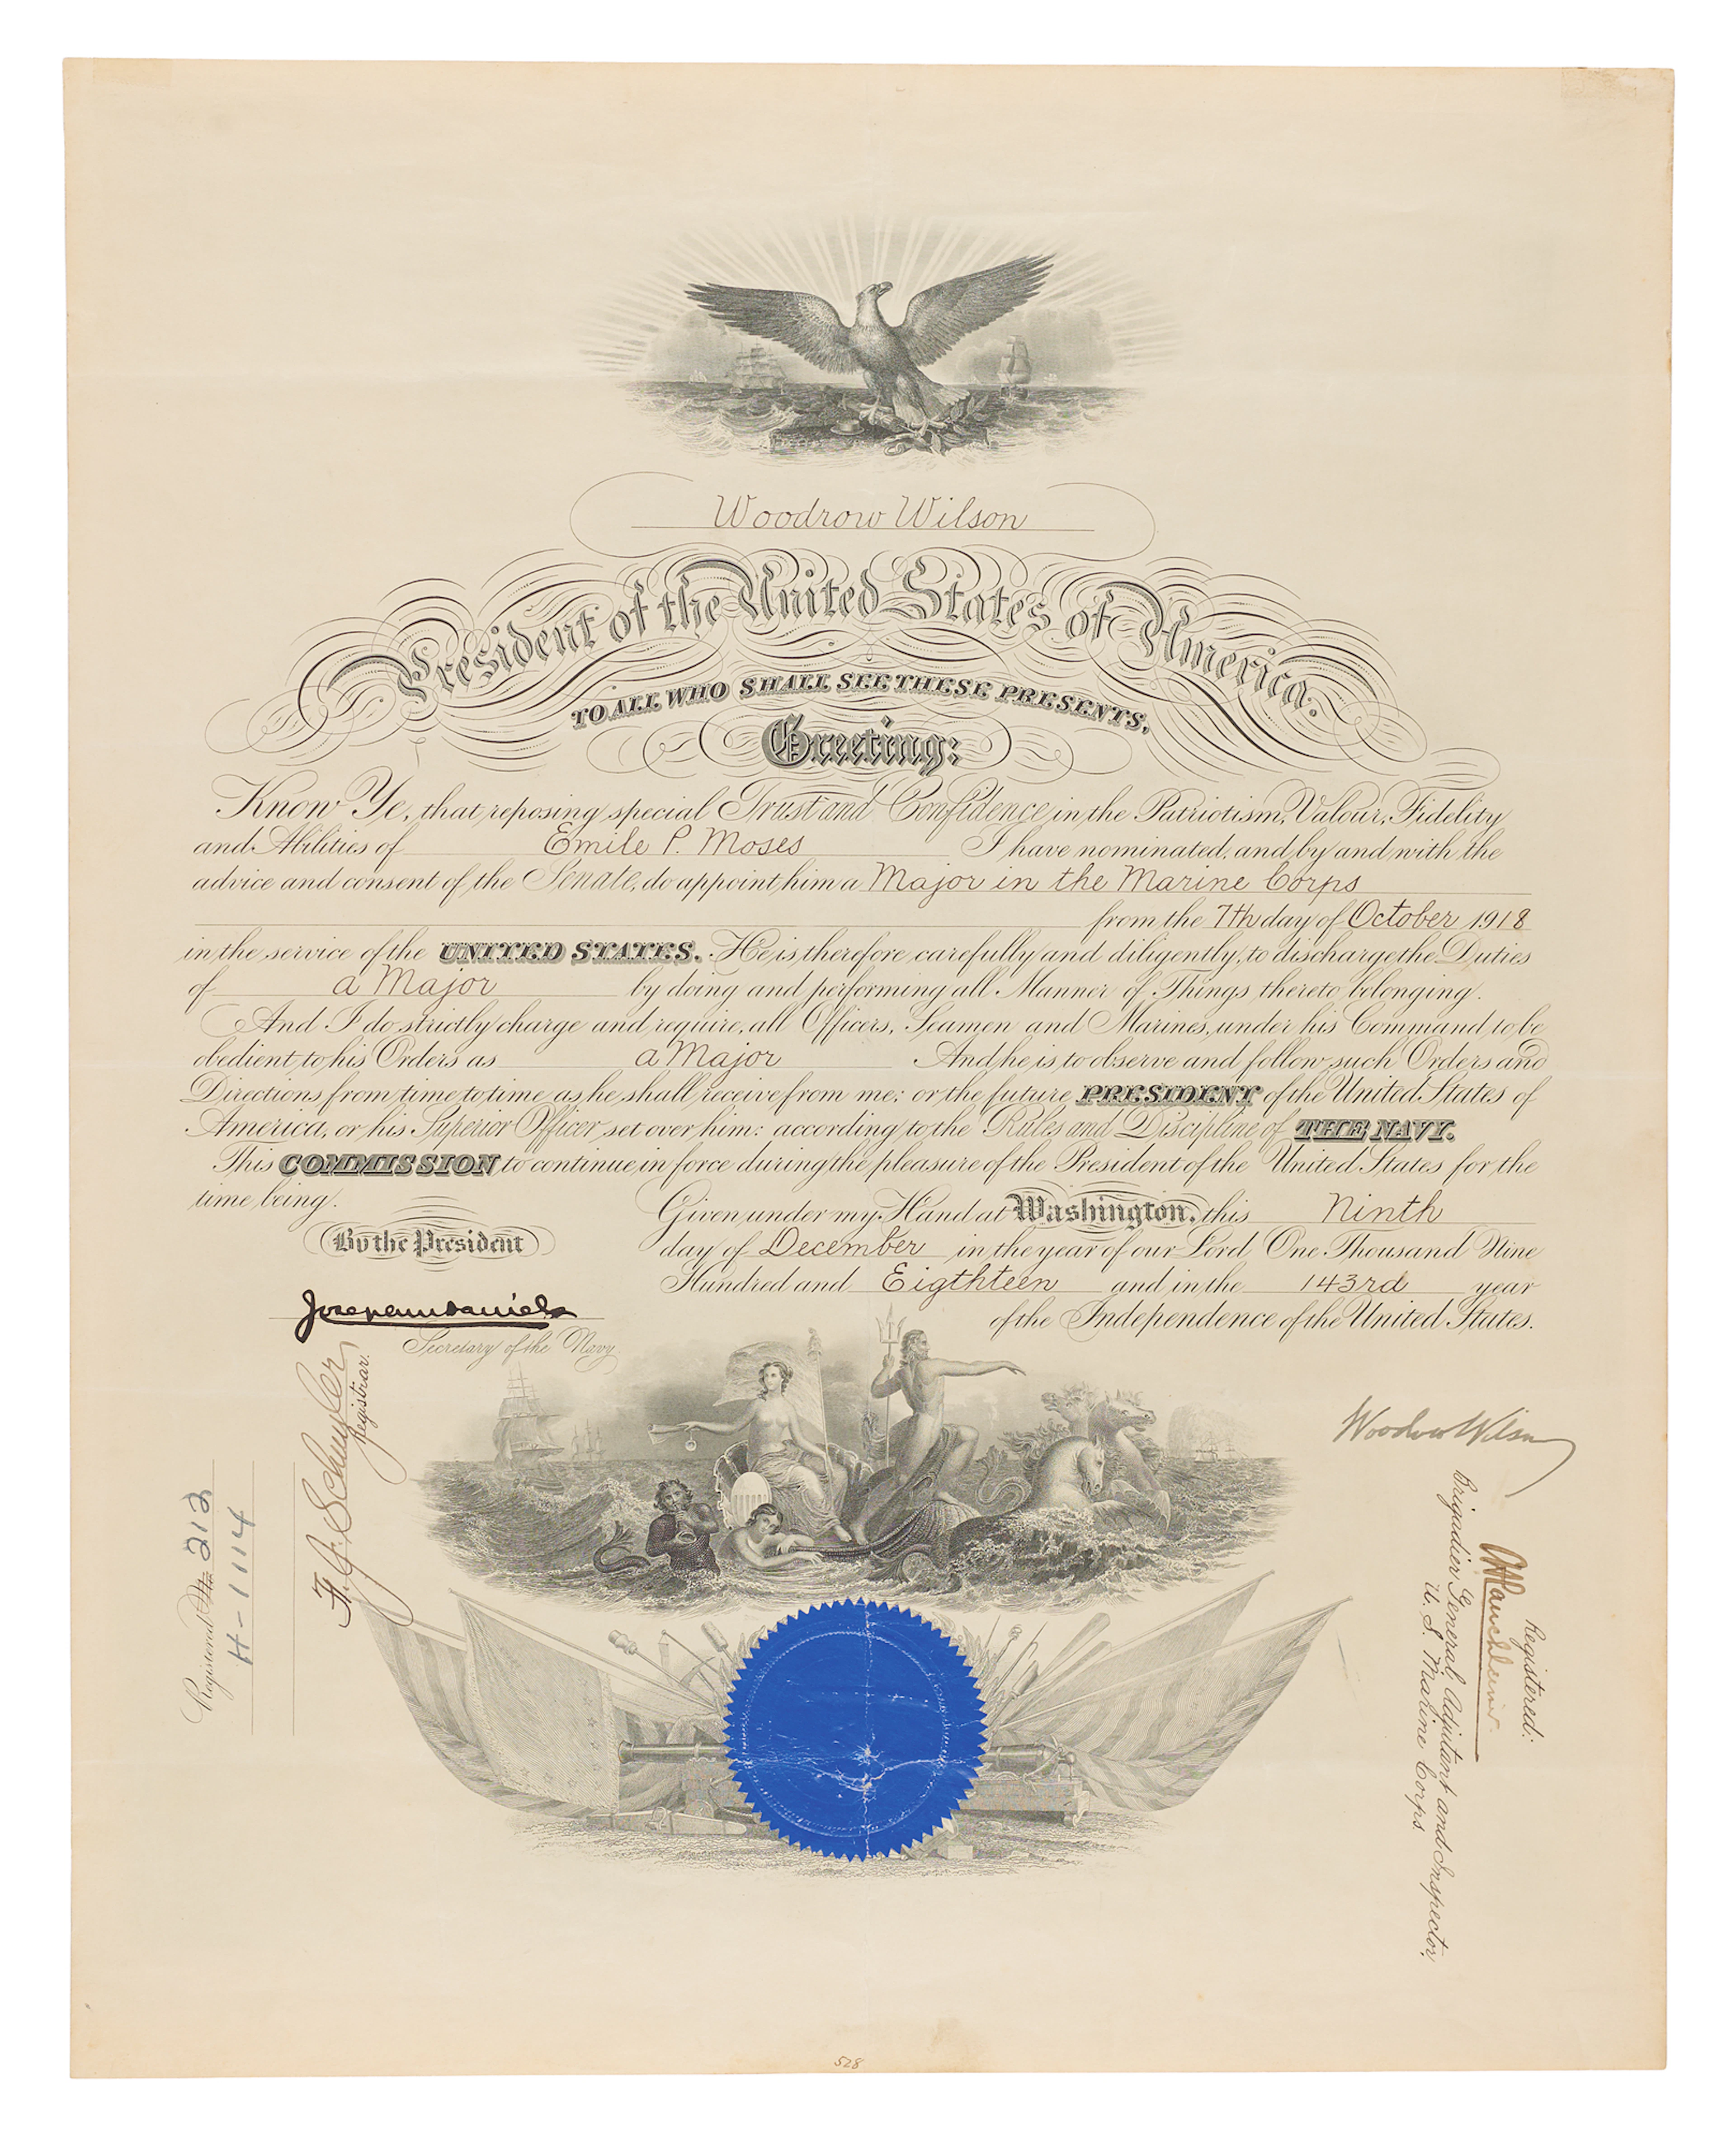 Woodrow Wilson
President of the United States of America.
TO ALL WHO SHALL SEE THESE PRESENTS,
Greeting:
Know Ye, that reposing special Trust and Confidence in the Patriotism, Valour, Fidelity
and Abilities of Emile P. Moses I have nominated, and by and with the
advice and consent of the Senate, do appoint him a Major in the Marine Corps
from the 7th day of October 1918
in the service of the UNITED STATES. He is, therefore carefully and diligently, to discharge the Duties
of a Major by doing and performing all Manner of Things thereto belonging.
And I do strictly charge and require, all Officers, Seamen and Marines, under his Command, to be
obedient to his Orders as a Major And he is to observe and follow such Orders and
Directions from time to time as he shall receive from me; or the future PRESIDENT of the United States of
America, or his Superior Officer set over him: according to the Rules and Discipline of THE NAVY.
This COMMISSION to continue in force during the pleasure of the President of the United States for the
time being.
Given under my Hand at Washington, this Ninth
day of December in the year of our Lord One Thousand Nine
Hundred and Eigthteen and in the 143rd year
of the Independence of the United States.
By the President
Josephus Daniels
Secretary of the Navy
F. J. Schuyler
Registrar.
Registered No 212
H-1114
Woodrow Wilson
Registered:
Brigadier General Adjutant and Inspector,
U. S. Marine Corps
528